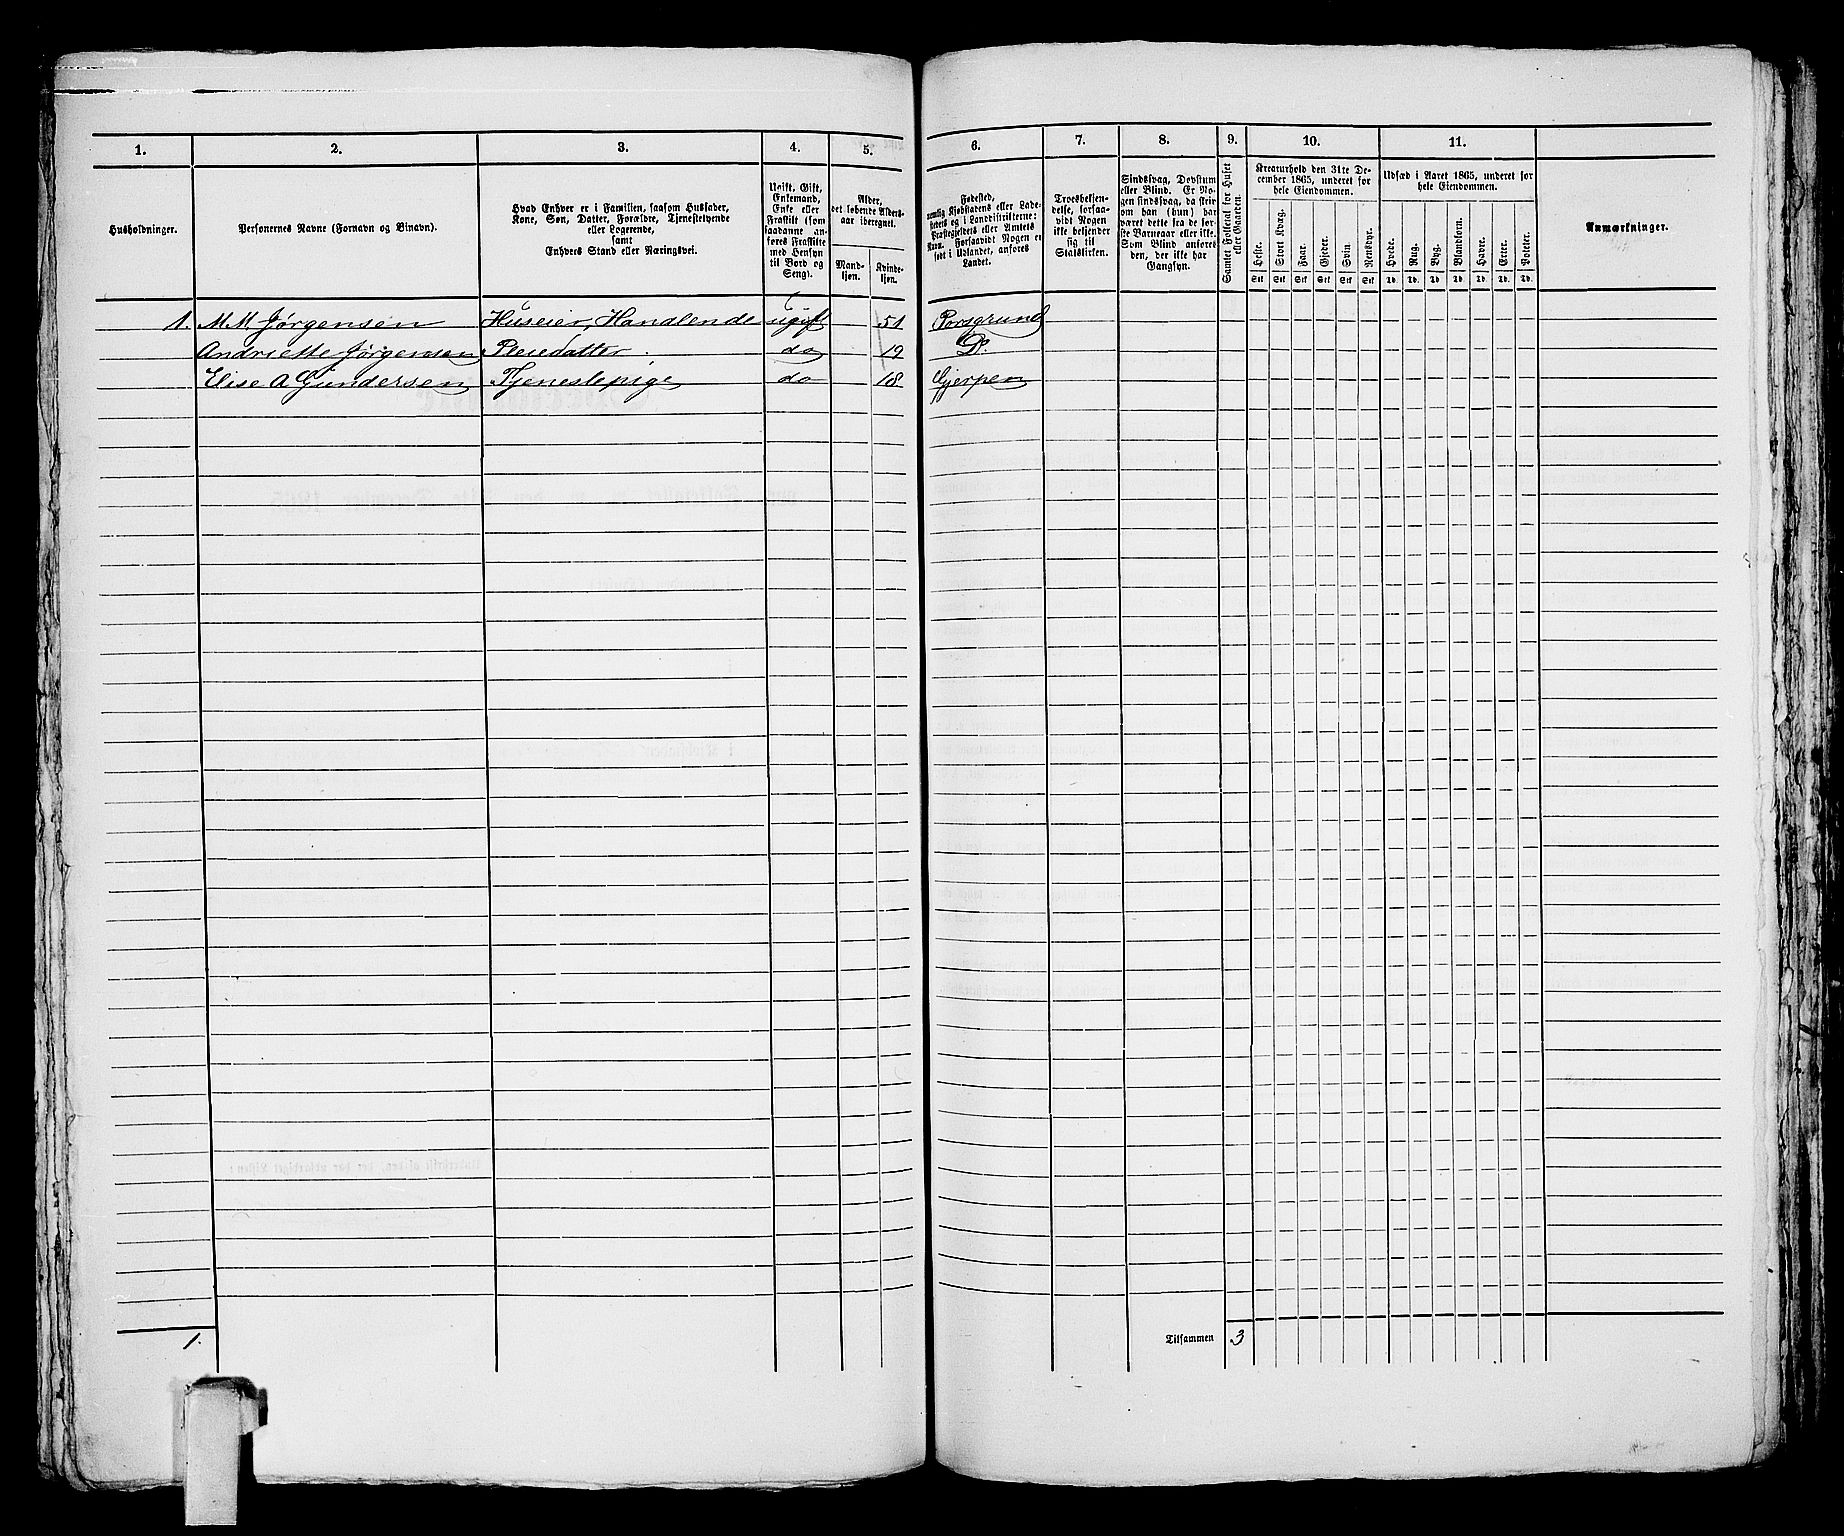 1. 2. 3. 4. 5. 6. 7. 8. 9. 10. 11.
Husholdninger.
Personernes Navne (Fornavn og Binavn).
Hvad Enhver er i Familien, saasom Husfader,
Kone, Søn, Datter, Forældre, Tjenestetyende
eller Logerende,
samt
Enhvers Stand eller Næringsvei.
Ugift, Gift,
Enkemand,
Enke eller
Fraskilt (som
saadanne an-
føres Fraskilte
med Hensyn
til Bord og
Seng).
Alder,
det løbende Alders-
aar iberegnet.
Mand-
kjøn.
Kvinde-
kjøn.
Fødested,
nemlig Kjøbstadens eller Lade-
stedets og i Landdistrikterne:
Præstegjeldets eller Amtets
Navn. Forsaavidt Nogen er
født i Udlandet, anføres
Landet.
Troesbekjen-
delse, forsaa-
vidt Nogen
ikke bekjender
sig til
Statskirken.
Sindssvag, Døvstum
eller Blind. Er No-
gen sindssvag, da skriv
om han (hun) har
været dette fra de før-
ste Barneaar eller ikke.
Som Blind anføres
den, der ikke har
Gangsyn.
Samlet Folketal for Huset
eller Gaarden.
Kreaturhold den 31te De-
cember 1865, underet for
hele Eiendommen.
Heste. Stort Kvæg. Faar. Gjeder. Svin. Rensdyr.
Stk Stk Stk Stk Stk Stk
Udsæd i Aaret 1865, underet for
hele Eiendommen.
Hvede. Rug. Byg. Blandkorn. Havre. Erter. Poteter.
Td. Td. Td. Td. Td. Td. Td.
Anmærkninger.
1. M. M. Jørgensen Huseier, Handlende ugift 51 Porsgrund
Andriette Jørgensen Pleiedatter. do 19 Do.
Elise A Gundersen Tjenestepige do 18 Gjerpen
1. Tilsammen 3